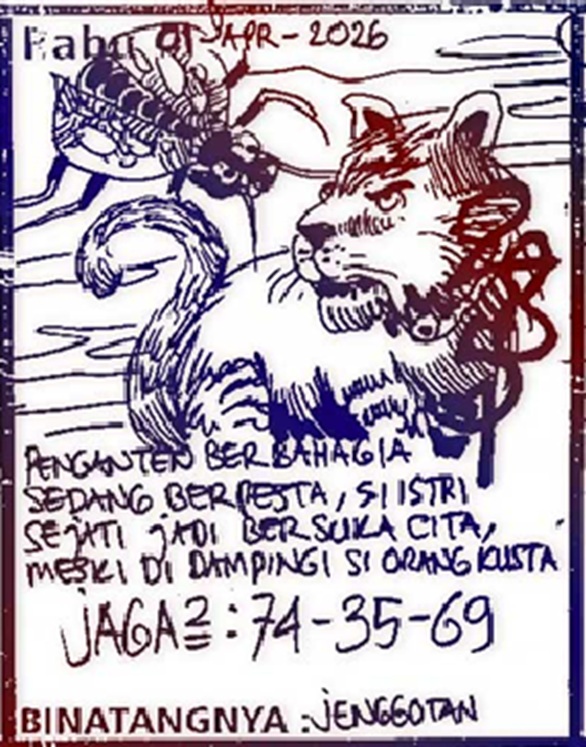 Rabu 01 APR - 2026
PENGANTEN BERBAHAGIA
SEDANG BERPESTA, SI ISTRI
SEJATI JADI BERSUKA CITA,
MESKI DI DAMPINGI SI ORANG KUSTA
JAGA2 : 74-35-69
BINATANGNYA : JENGGOTAN